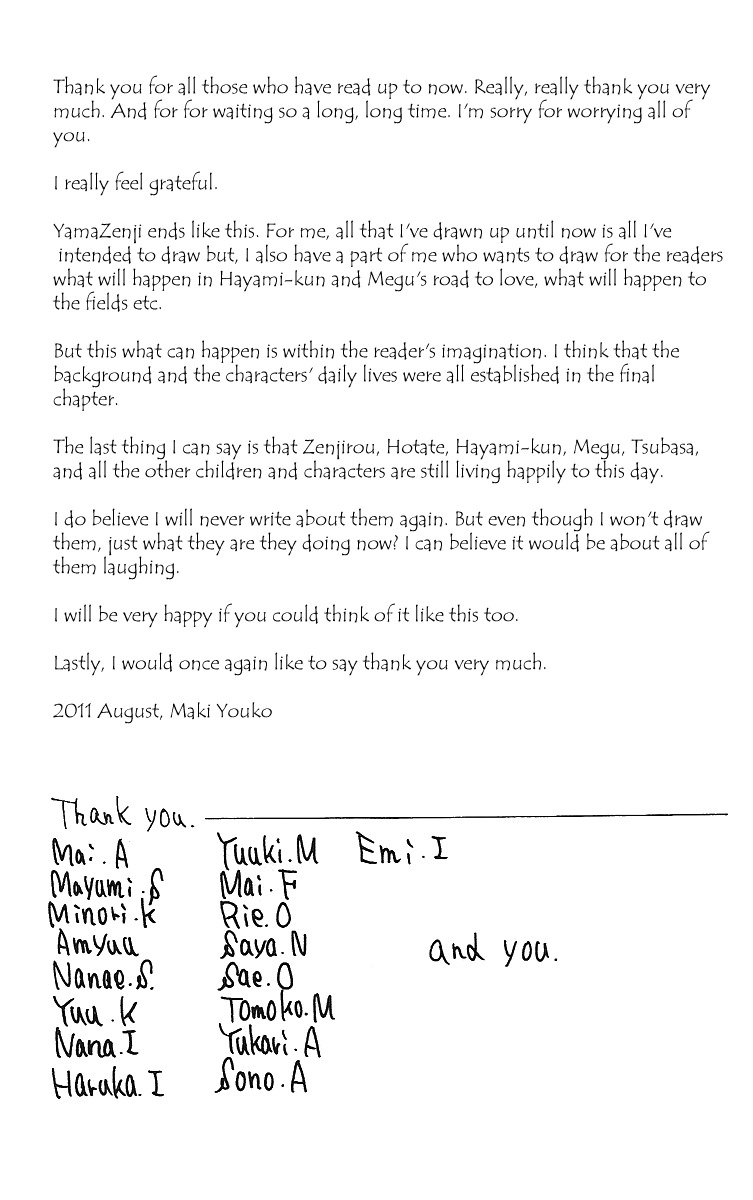 Thank you for all those who have read up to now. Really, really thank you very
much. And for for waiting so a long, long time. I'm sorry for worrying all of
you.
I really feel grateful.
YamaZenji ends like this. For me, all that I've drawn up until now is all I've
intended to draw but, I also have a part of me who wants to draw for the readers
what will happen in Hayami-kun and Megu's road to love, what will happen to
the fields etc.
But this what can happen is within the reader's imagination. I think that the
background and the characters' daily lives were all established in the final
chapter.
The last thing I can say is that Zenjirou, Hotate, Hayami-kun, Megu, Tsubasa,
and all the other children and characters are still living happily to this day.
I do believe I will never write about them again. But even though I won't draw
them, just what they are they doing now? I can believe it would be about all of
them laughing.
I will be very happy if you could think of it like this too.
Lastly, I would once again like to say thank you very much.
2011 August, Maki Youko
Thank you.
Mai.A
Mayumi.S
Minori.K
Amyuu
Nanae.S.
Yuu.K
Nana.I
Haruka.I
Yuuki.M
Mai.F
Rie.O
Saya.N
Sae.O
Tomoko.M
Yukari.A
Sono.A
Emi.I
and you.